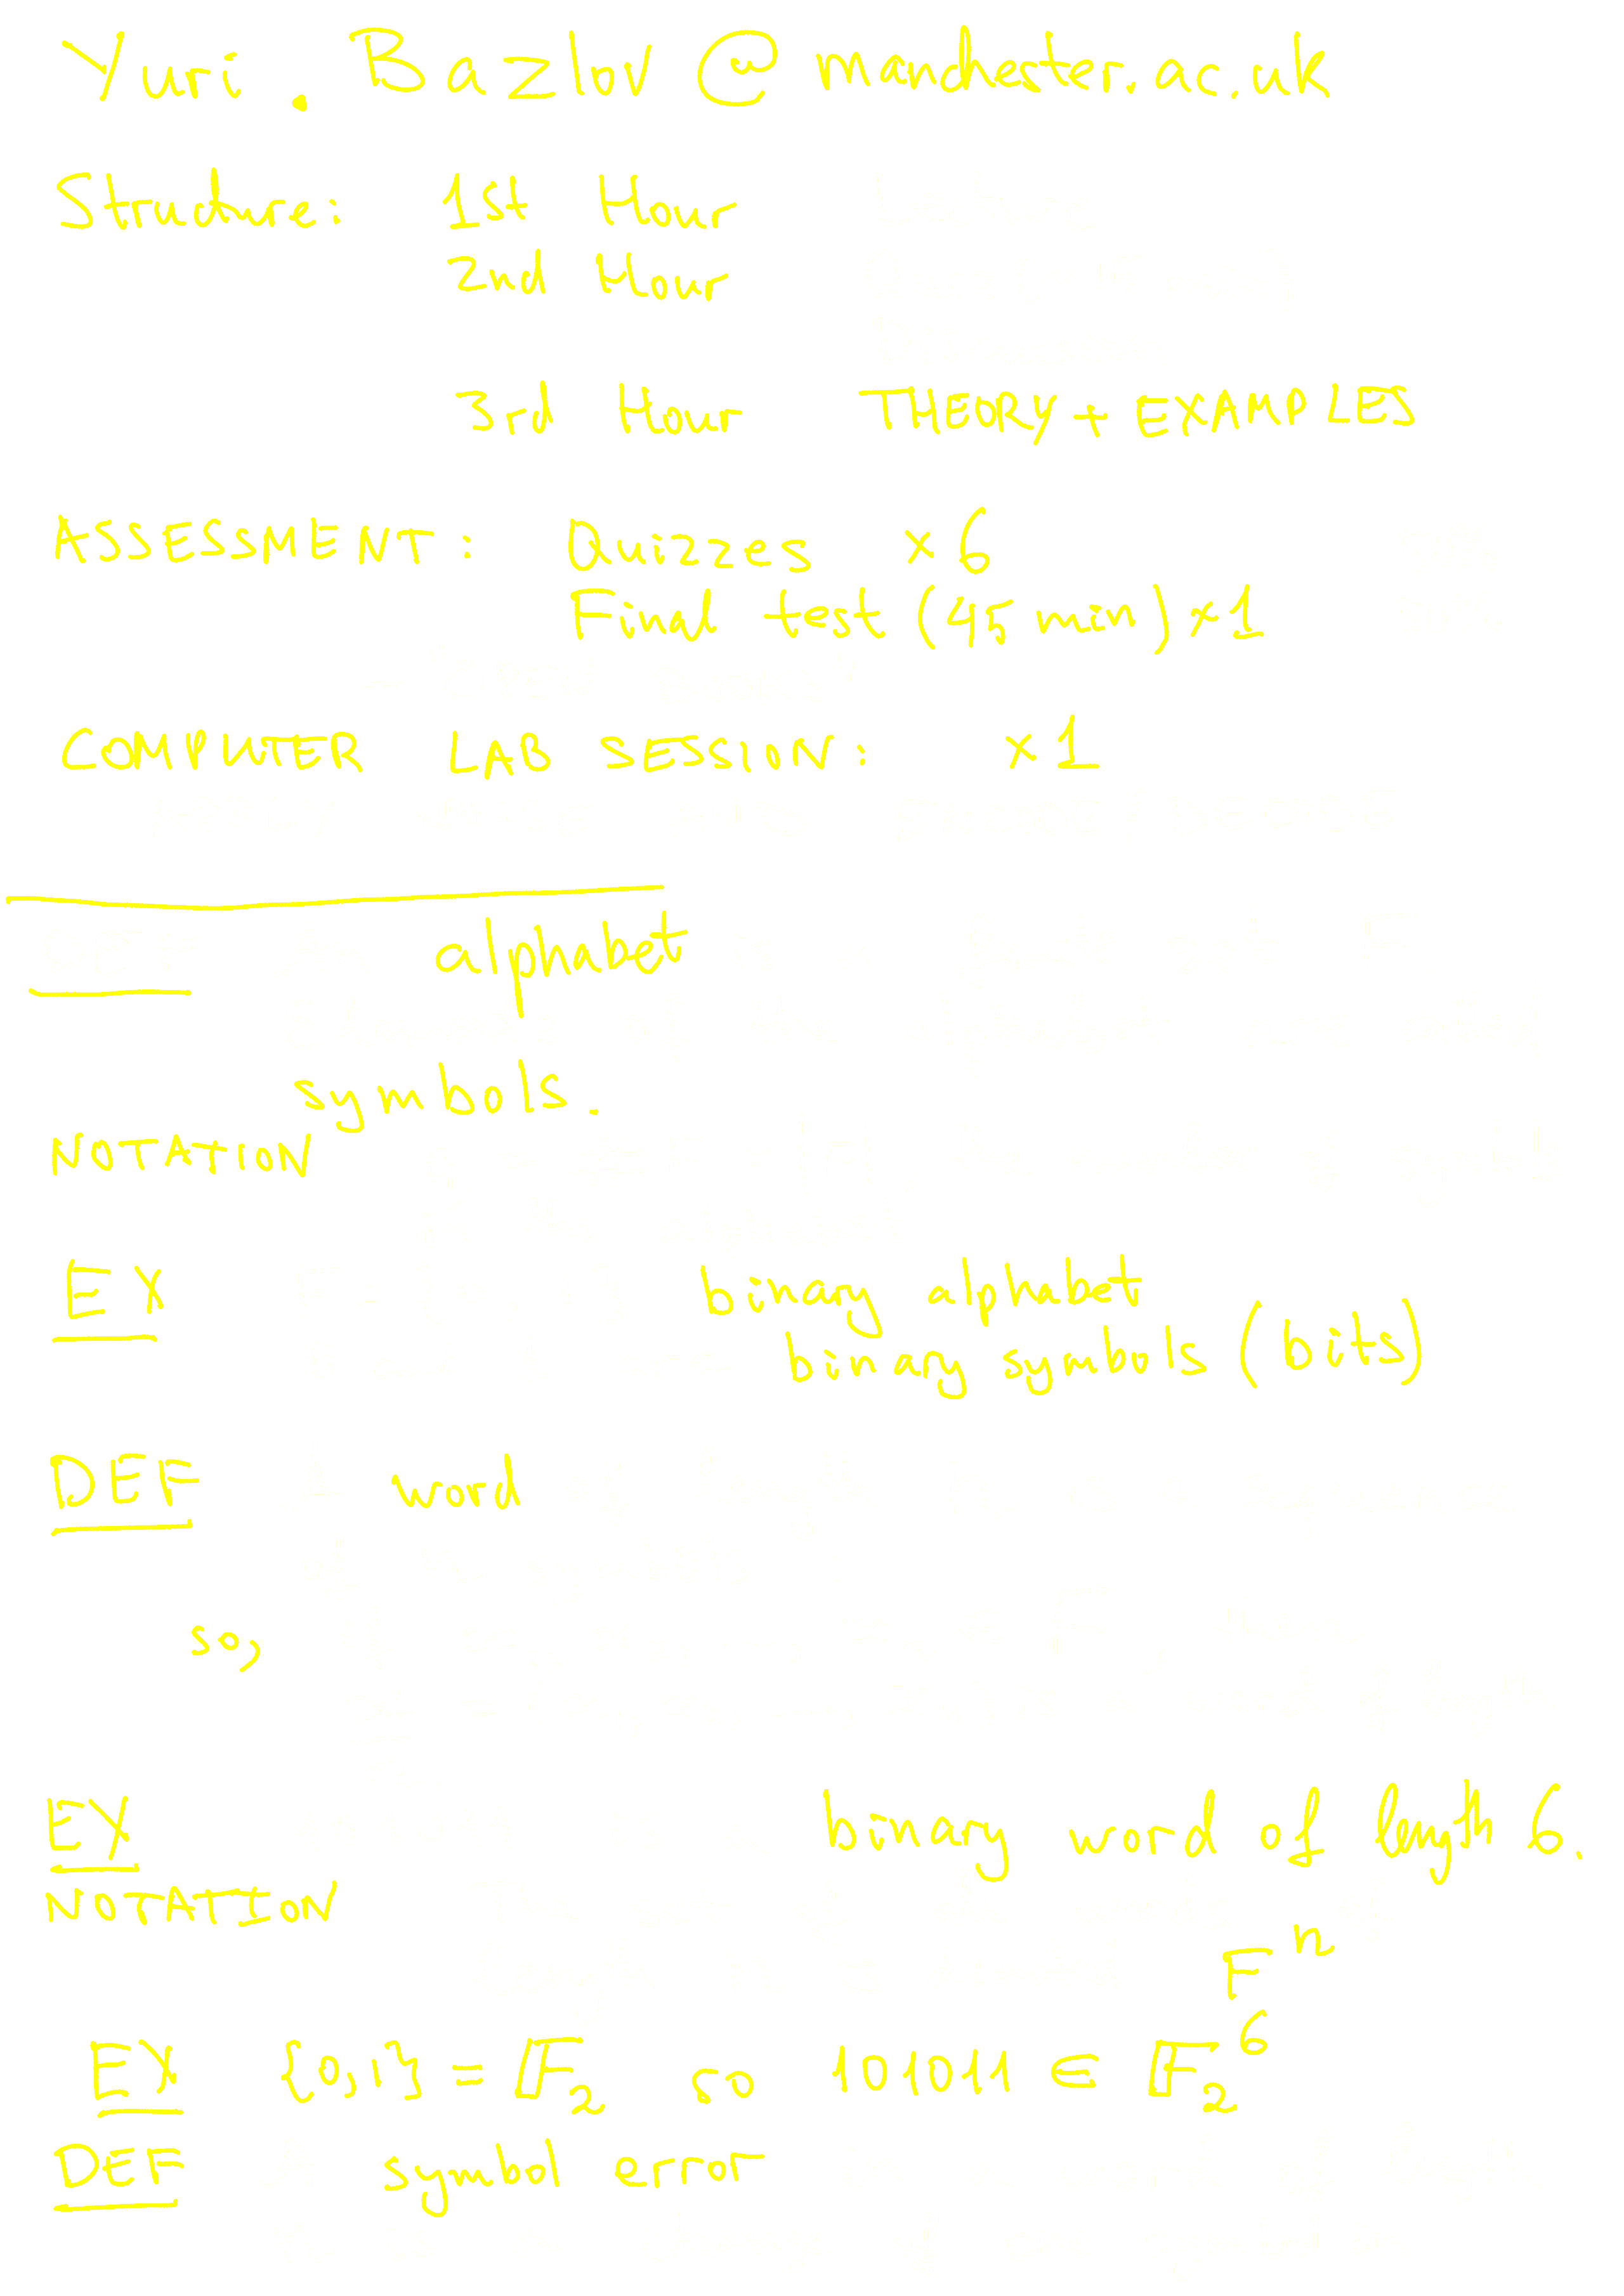 Yuri. Bazlov @ manchester.ac.uk
Structure: 1st Hour
2nd Hour
3rd Hour THEORY + EXAMPLES
ASSESSMENT: Quizzes ×6
Final test (45 min) ×1
COMPUTER LAB SESSION: ×1
alphabet
symbols.
NOTATION
EX binary alphabet
binary symbols (bits)
DEF word
so,
EX binary word of length 6.
NOTATION
F^n
EX {0,1} = 𝔽₂ so 101011 ∈ 𝔽₂⁶
DEF symbol error